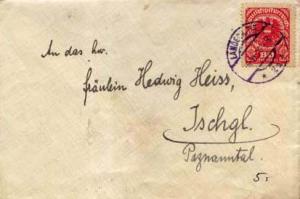 An das hw.
Fräulein Hedwig Heiss,
Ischgl.
Paznauntal.
80
5.